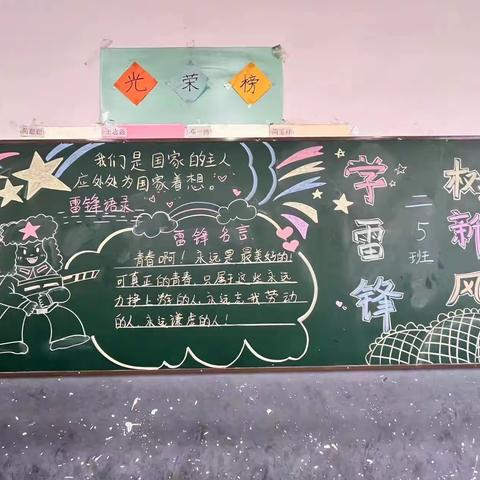 光荣榜
我们是国家的主人
应处处为国家着想。
雷锋语录
雷锋名言
青春啊！永远是最美好的
可真正的青春，只属于这些永远
力挣上游的人，永远忘我劳动
的人，永远谦虚的人！
学雷锋
二5班
树新风